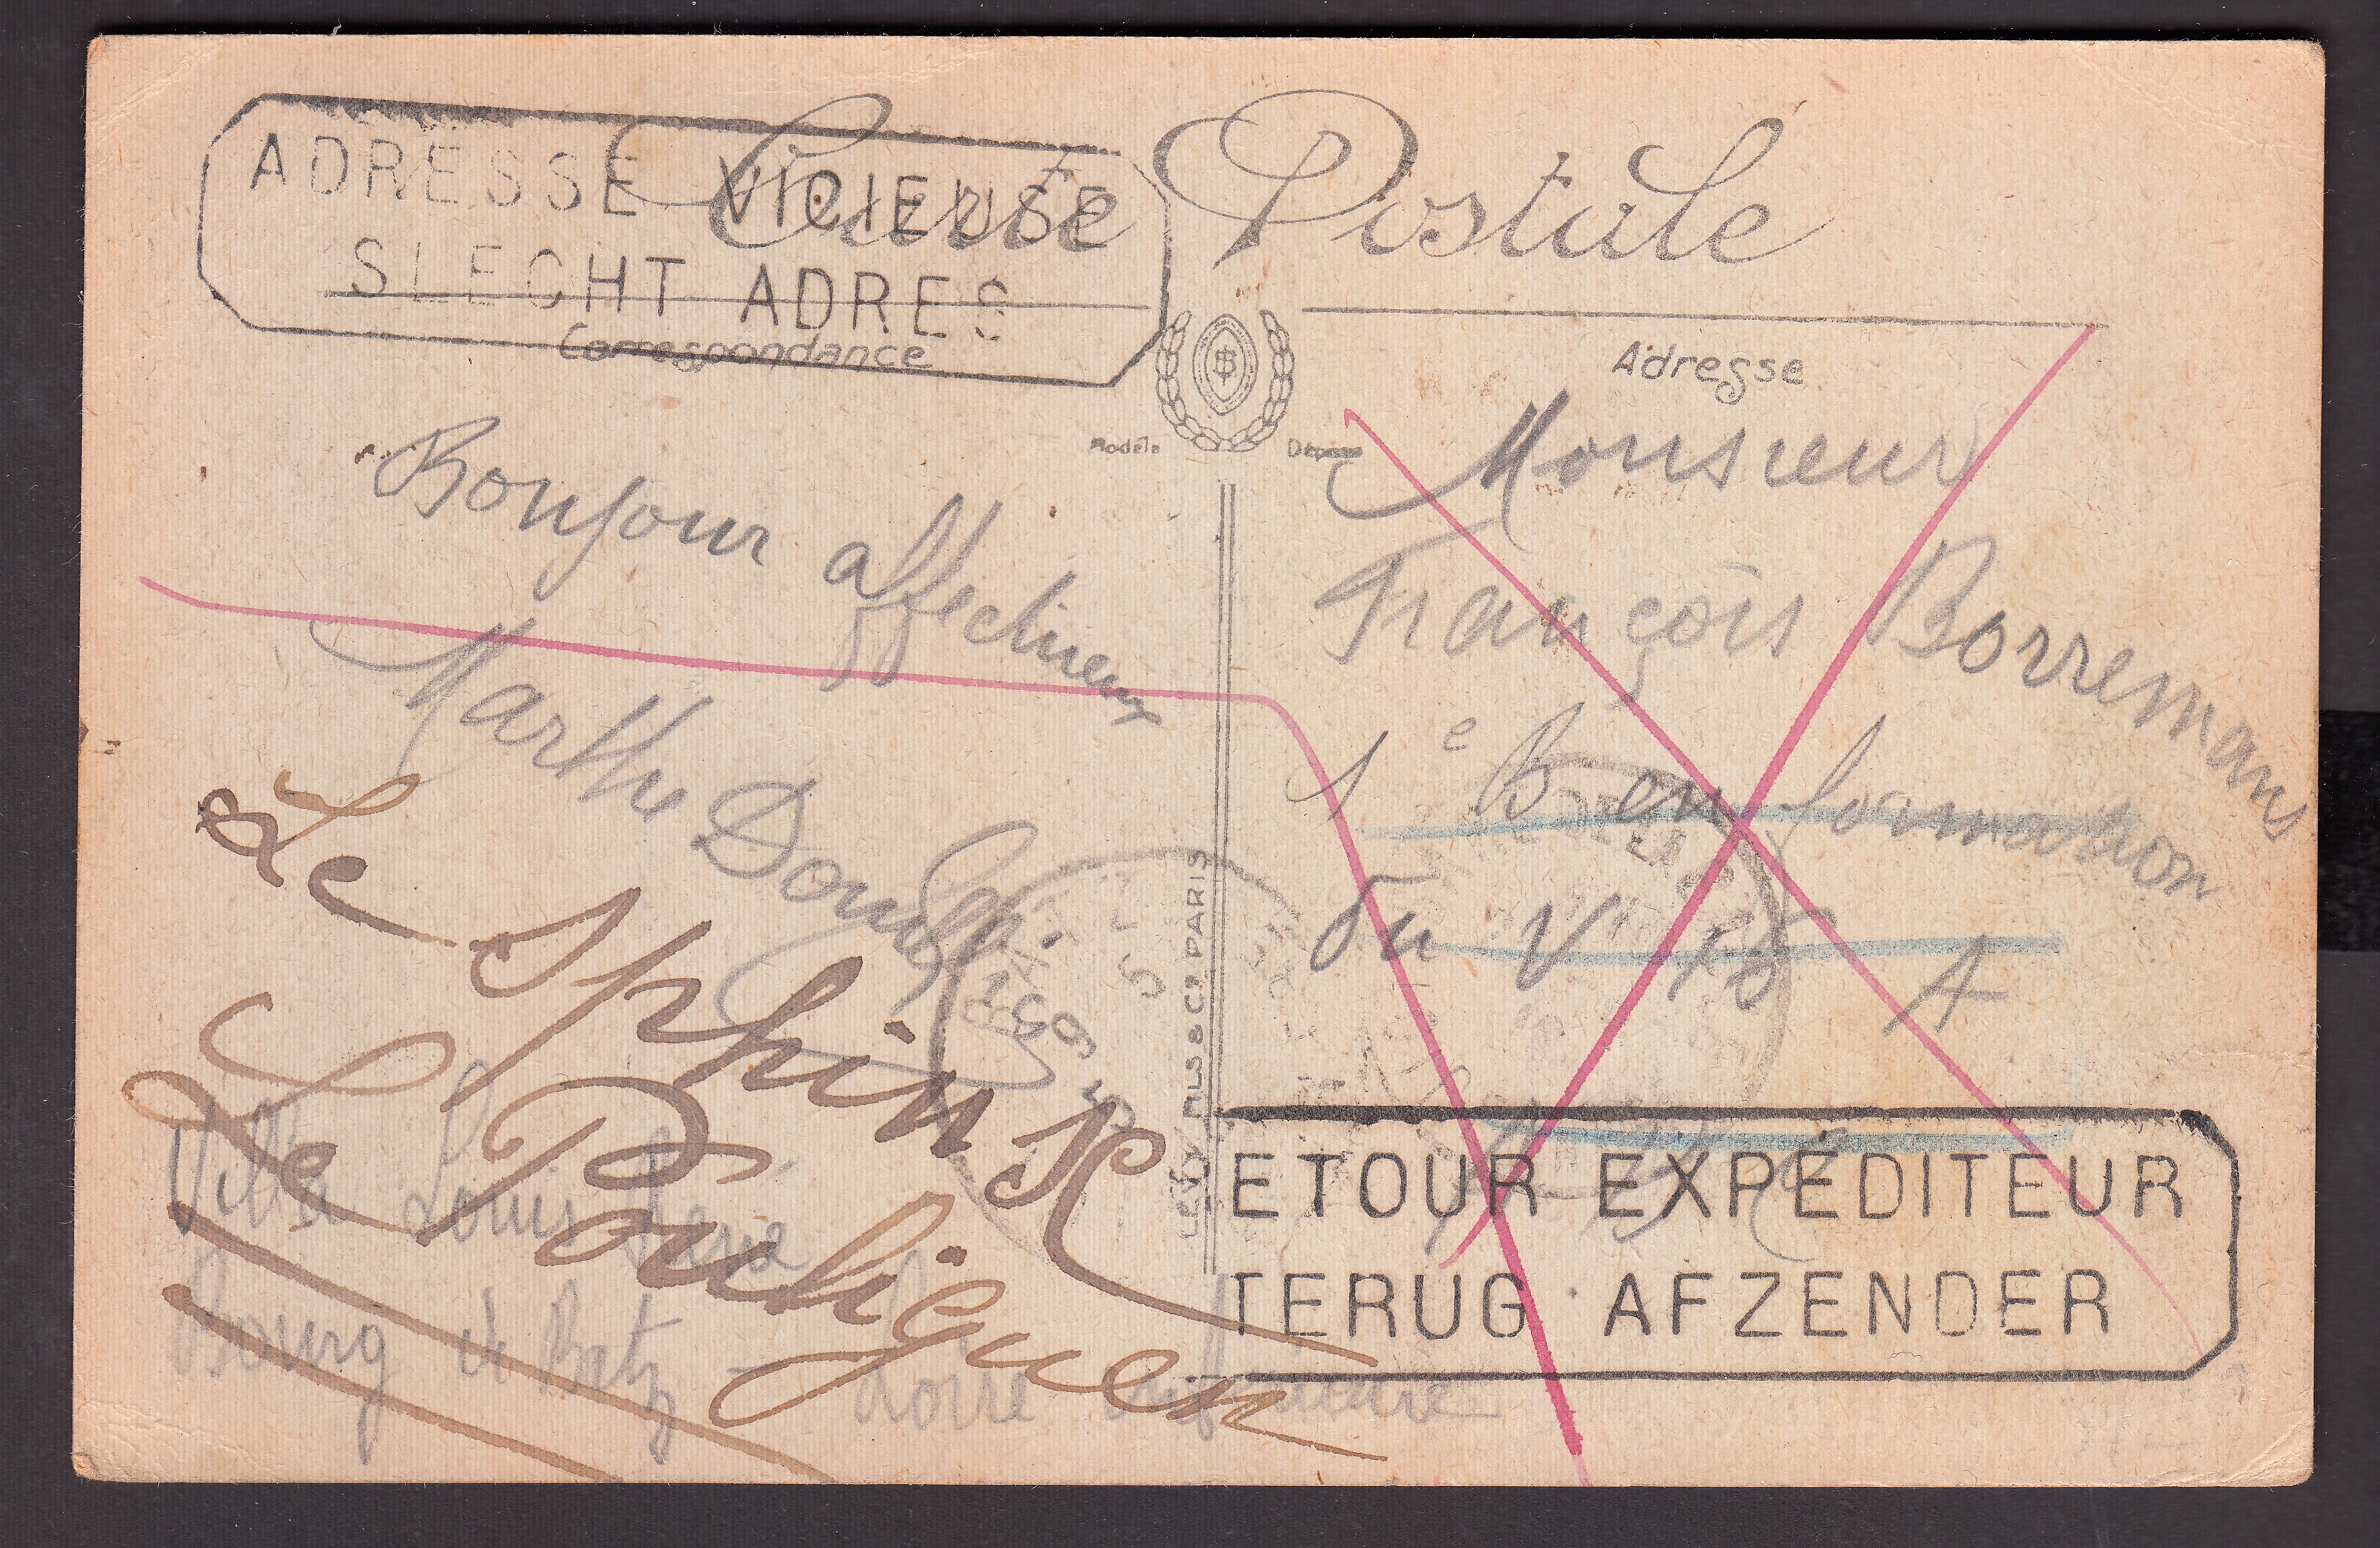 Carte Postale
ADRESSE VICIEUSE
SLECHT ADRES
Correspondance
Adresse
Modèle Déposé
Bonjour affectueux
Marthe
Monsieur
François Borremans
1e B en formation
du V
A
LEVY FILS & Cie PARIS
Le Sphinx
Le Pouliguen
Villa Louis
Bourg de Batz - Loire Inférieure
ETOUR EXPÉDITEUR
TERUG AFZENDER